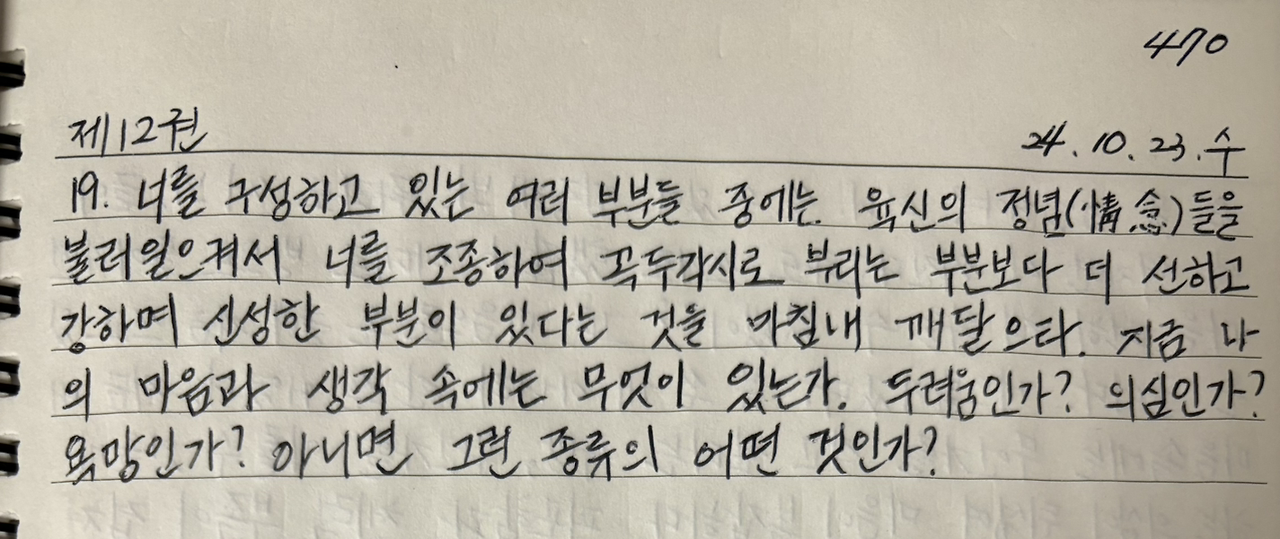 470
제12권
24. 10. 23. 수
19. 너를 구성하고 있는 여러 부분들 중에는 육신의 정념(情念)들을
불러일으켜서 너를 조종하여 꼭두각시로 부리는 부분보다 더 선하고
강하며 신성한 부분이 있다는 것을 마침내 깨달으라. 지금 나
의 마음과 생각 속에는 무엇이 있는가. 두려움인가? 의심인가?
욕망인가? 아니면 그런 종류의 어떤 것인가?